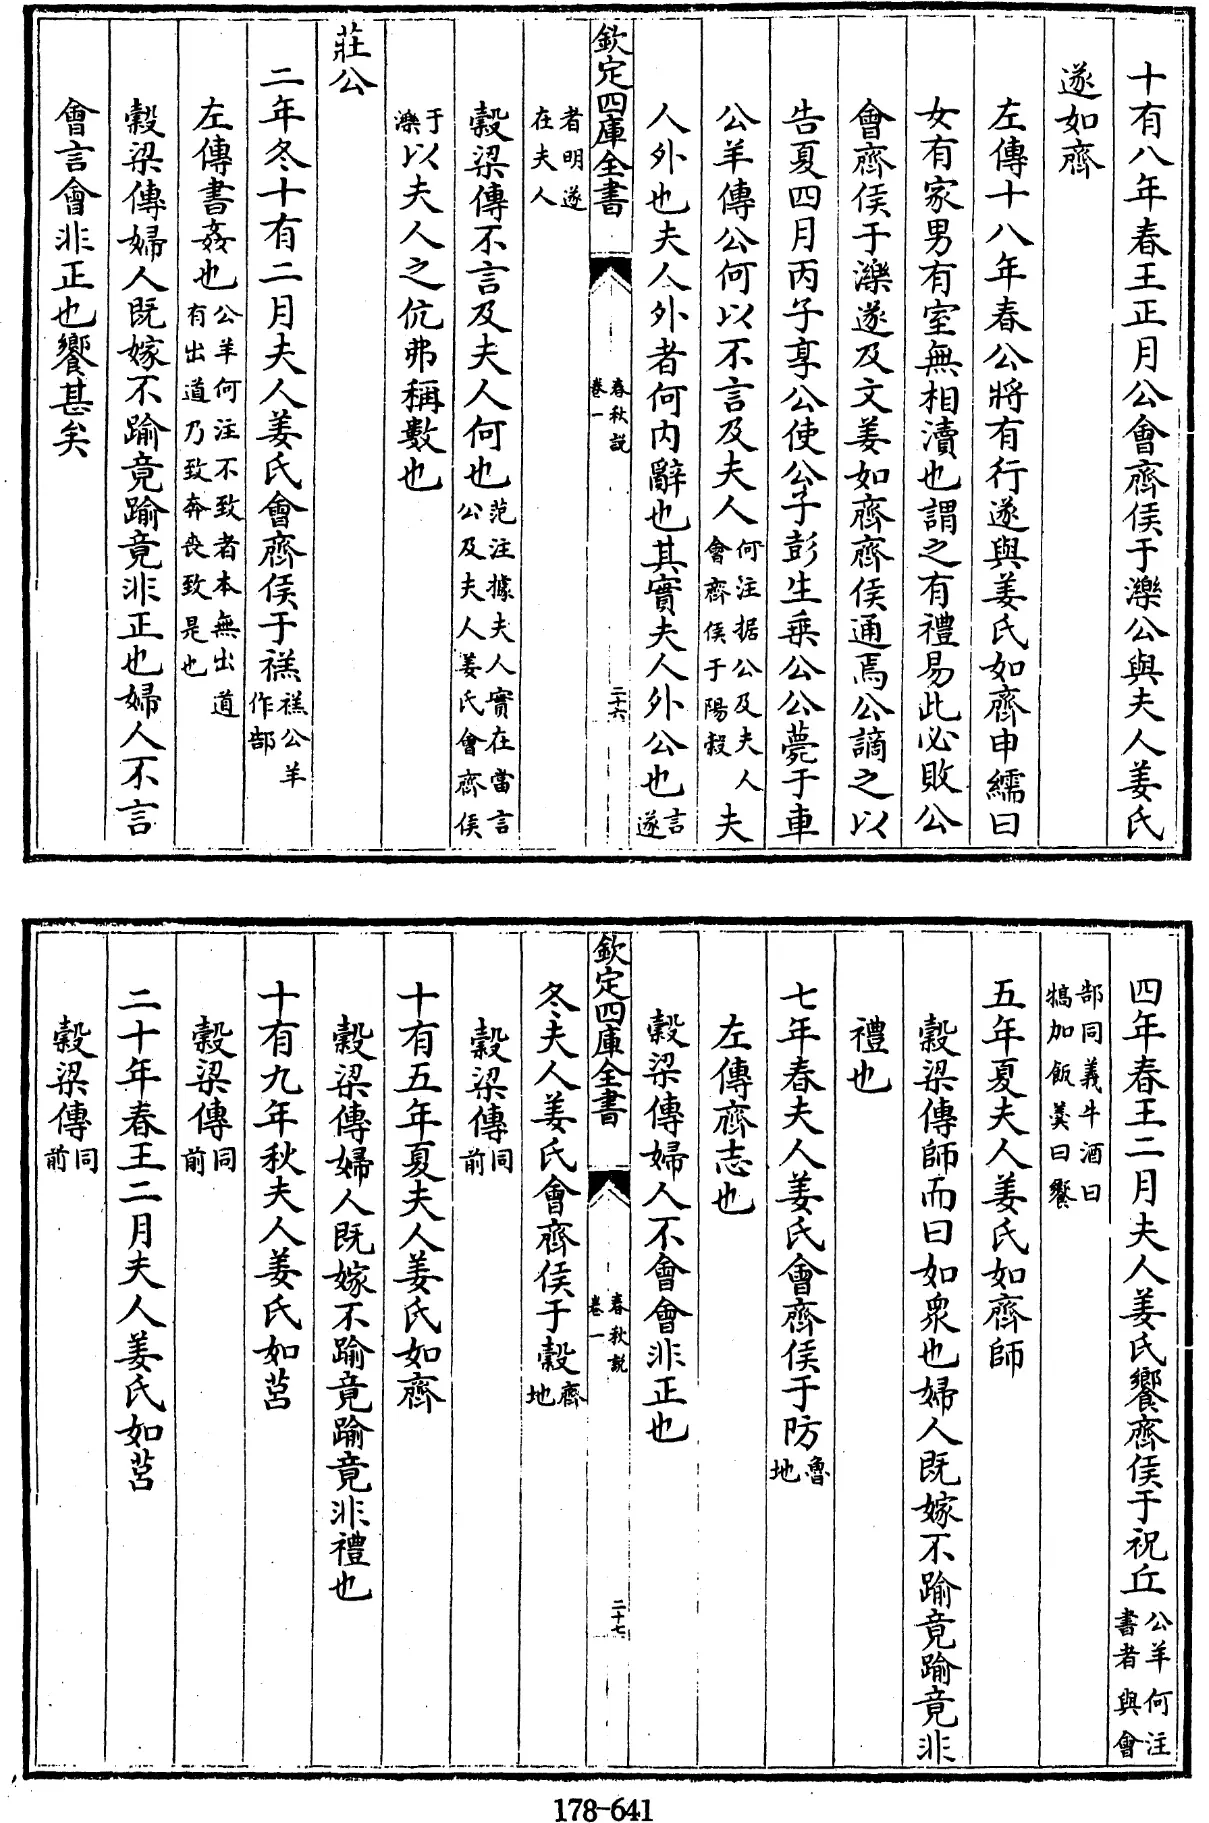 十有八年春王正月公會齊侯于濼公與夫人姜氏
遂如齊
左傳十八年春公將有行遂與姜氏如齊申繻曰
女有家男有室無相瀆也謂之有禮易此必敗公
會齊侯于濼遂及文姜如齊齊侯通焉公謫之以
告夏四月丙子享公使公子彭生乗公公薨于車
公羊傳公何以不言及夫人何注据公及夫人會齊侯于陽穀夫
人外也夫人外者何内辭也其實夫人外公也言遂
欽定四庫全書
春秋說
卷一
二十六
者明遂在夫人
穀梁傳不言及夫人何也范注據夫人實在當言公及夫人姜氏會齊侯
于濼以夫人之伉弗稱數也
莊公
二年冬十有二月夫人姜氏會齊侯于禚禚公羊作郜
左傳書姦也公羊何注不致者本無出道有出道乃致奔喪致是也
穀梁傳婦人既嫁不踰竟踰竟非正也婦人不言
會言會非正也饗甚矣
四年春王二月夫人姜氏饗齊侯于祝丘公羊何注書者與會
郜同義牛酒曰犒加飯羹曰饗
五年夏夫人姜氏如齊師
穀梁傳師而曰如衆也婦人既嫁不踰竟踰竟非
禮也
七年春夫人姜氏會齊侯于防魯地
左傳齊志也
穀梁傳婦人不會會非正也
欽定四庫全書
春秋說
卷一
二十七
冬夫人姜氏會齊侯于穀齊地
穀梁傳同前
十有五年夏夫人姜氏如齊
穀梁傳婦人既嫁不踰竟踰竟非禮也
十有九年秋夫人姜氏如莒
穀梁傳同前
二十年春王二月夫人姜氏如莒
穀梁傳同前
178-641